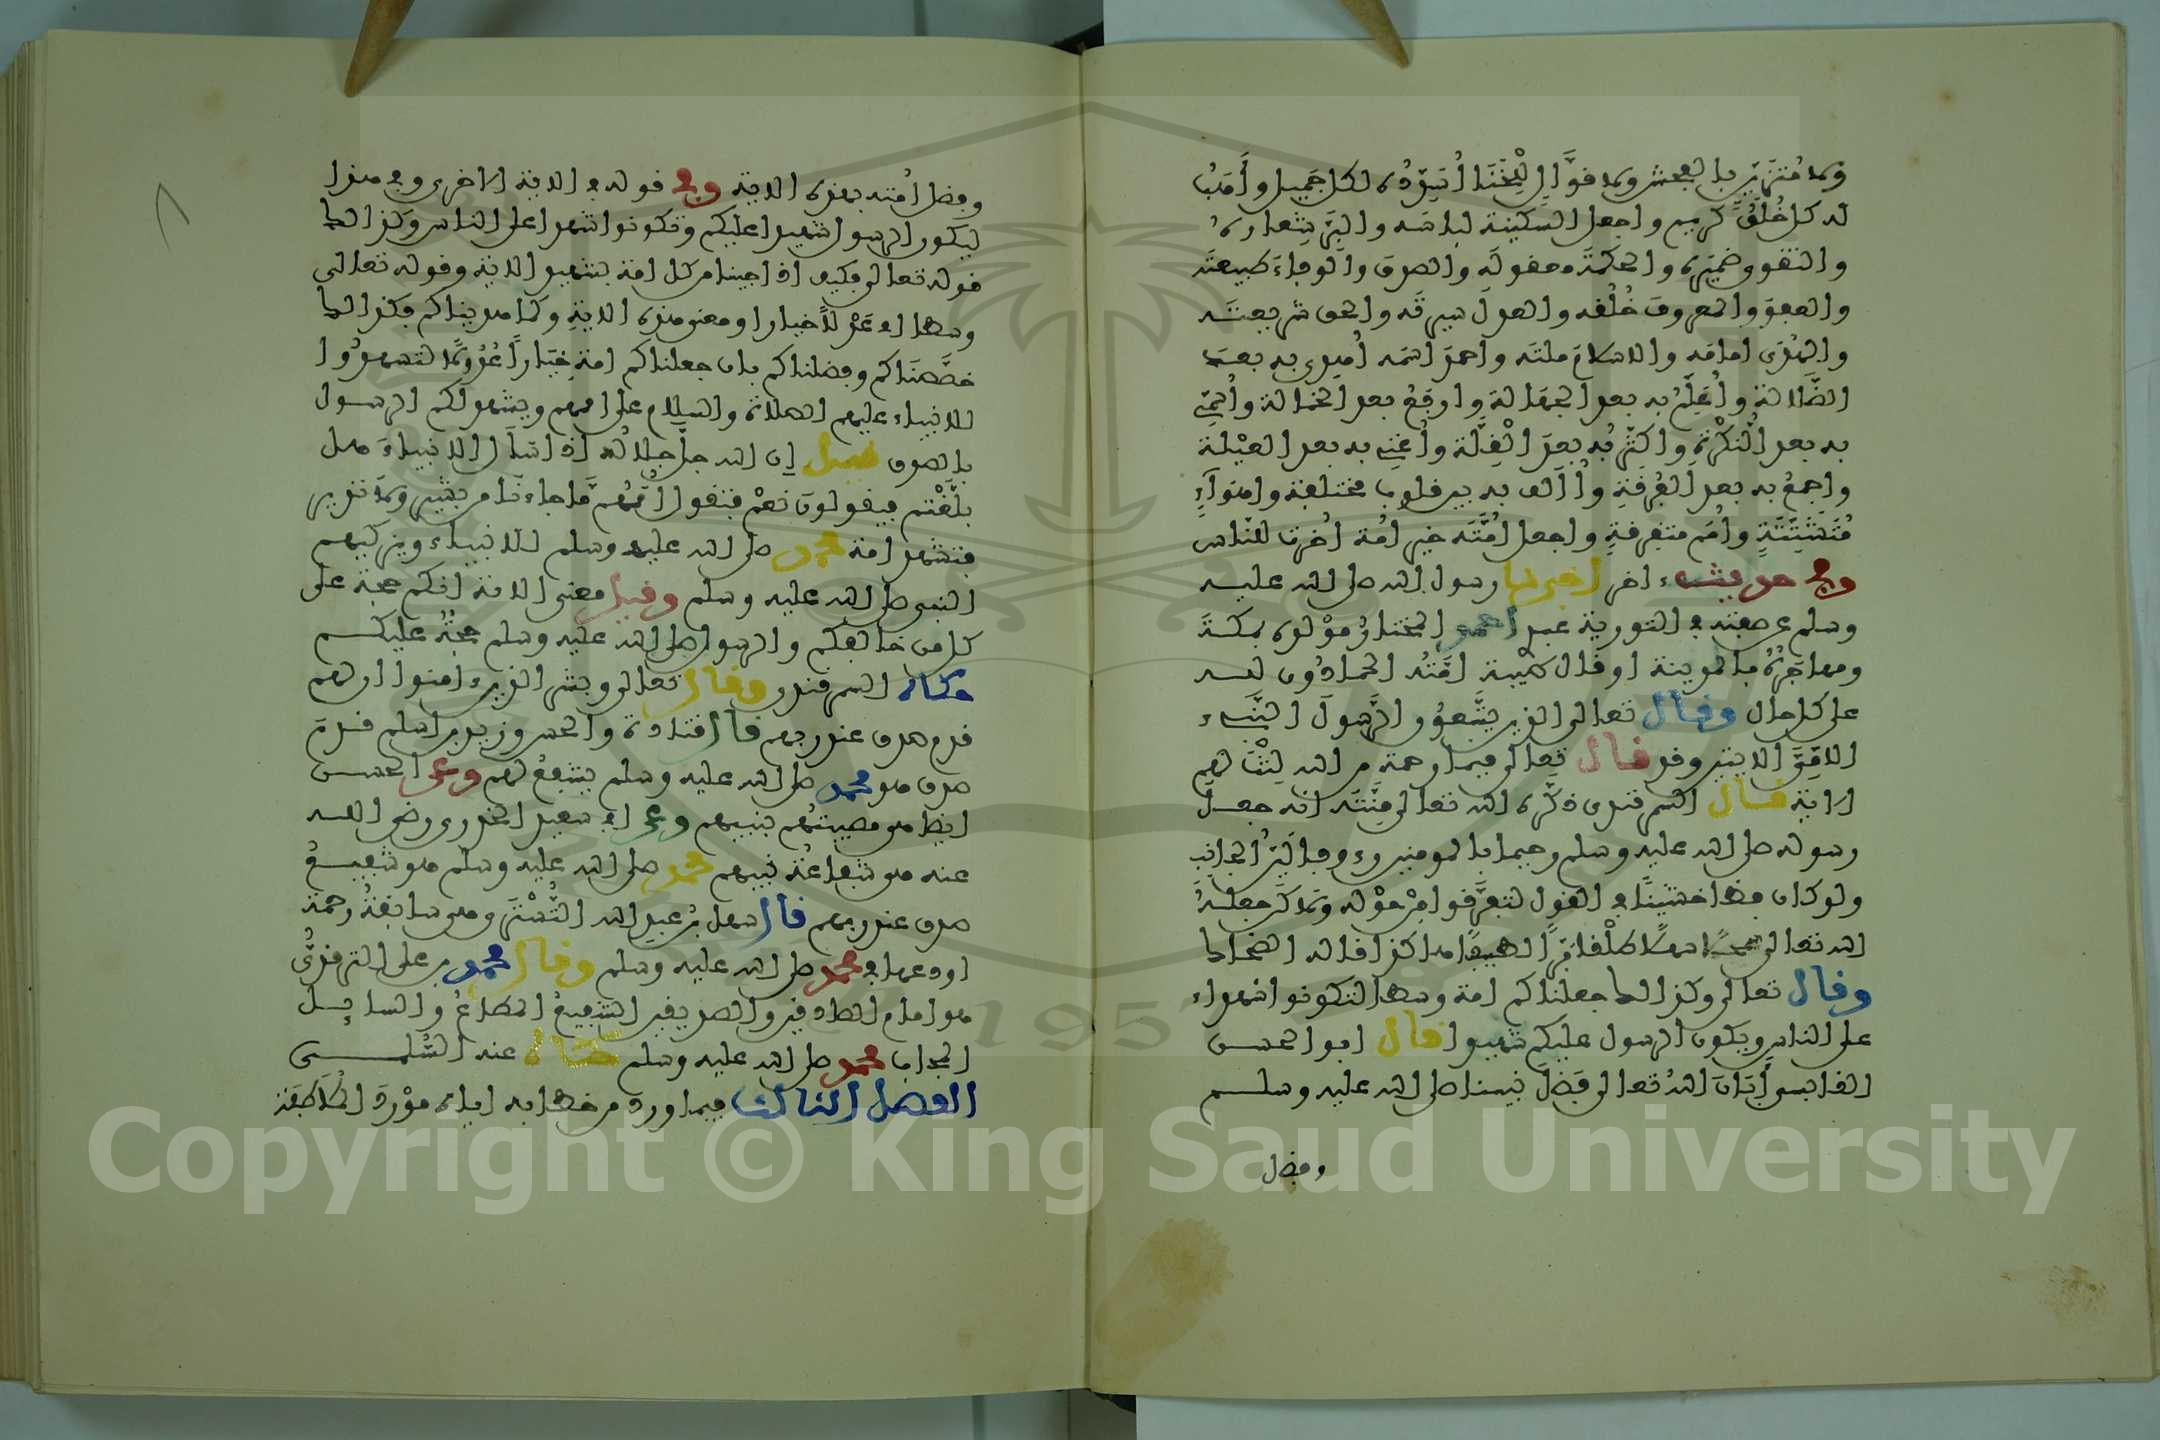 ولا متزين بالفحش ولا قوال للخنا أسدده لكل جميل وأهب
له كل خلق كريم واجعل السكينة لباسه والبر شعاره
والتقوى ضميره والحكمة معقوله والصدق والوفاء طبيعته
والعفو والمعروف خلقه والعدل سيرته والحق شريعته
والهدى امامه والاسلام ملته واحمد اسمه أهدي به بعد
الضلالة وأعلم به بعد الجهالة وارفع بعد الخمالة وأسمي
به بعد النكرة واكثر به بعد القلة وأغني به بعد العيلة
واجمع به بعد الفرقة وأألف به بين قلوب مختلفة واهواء
متشتتة وأمم متفرقة واجعل أمته خير أمة أخرجت للناس
وفي حديث اخر اخبرنا رسول الله صلى الله عليه
وسلم عن صفته في التورية عبدي احمد المختار مولده بمكة
ومهاجره بالمدينة او قال طيبة امته الحمادون لله
على كل حال وقال تعالى الذين يتبعون الرسول النبيء
الامي الايتين وقد قال تعالى فبما رحمة من الله لنت لهم
الاية قال السمرقندي ذكرهم الله تعالى منته انه جعل
رسوله صلى الله عليه وسلم رحيما بالمومنين رءوفا لين الجانب
ولو كان فظا خشينا في القول لتفرقوا من حوله ولاكن جعله
الله تعالى سمحا سهلا طلقا برا لطيفا هاكذا قاله الضحاك
وقال تعالى وكذالك جعلناكم امة وسطا لتكونوا شهداء
على الناس ويكون الرسول عليكم شهيدا قال ابو الحسن
القابسي أبان الله تعالى فضل نبينا صلى الله عليه وسلم
وفضل
وفضل أمته بهذه الاية وفي قوله في الاية الاخرى وفي هذا
ليكون الرسول شهيدا عليكم وتكونوا شهداء على الناس وكذالك
قوله تعالى فكيف اذا جئنا من كل امة بشهيد الاية وقوله تعالى
وسطا اي عدلا خيارا ومعنى هذه الاية وكما هديناكم فكذالك
خصصناكم وفضلناكم بان جعلناكم امة خيارا عدولا لتشهدوا
للانبياء عليهم الصلاة والسلام على اممهم ويشهد لكم الرسول
بالصدق قيل إن الله جل جلاله اذا سأل الانبياء هل
بلغتم فيقولون نعم فتقول أممهم ما جاءنا من بشير ولا نذير
فتشهد امة محمد صلى الله عليه وسلم للانبياء ويزكيهم
النبي صلى الله عليه وسلم وقيل معنى الاية انكم حجة على
كل من خالفكم والرسول صلى الله عليه وسلم حجة عليكم
حكاه السمرقندي وقال تعالى وبشر الذين ءامنوا ان لهم
قدم صدق عند ربهم قال قتادة والحسن وزيد بن اسلم قدم
صدق هو محمد صلى الله عليه وسلم يشفع لهم وعن الحسن
ايضا هي مصيبتهم بنبيهم وعن ابي سعيد الخدري رضي الله
عنه هي شفاعة نبيهم محمد صلى الله عليه وسلم هو شفيع
صدق عند ربهم قال سهل بن عبد الله التستري هي سابقة رحمة
اودعها في محمد صلى الله عليه وسلم وقال محمد بن علي الترمذي
هو امام الصادقين والصديقين الشفيع المطاع والسائل
المجاب محمد صلى الله عليه وسلم حكاه عنه السلمي
الفصل الثالث فيما ورد من خطابه اياه مورد الملاطفة
Copyright © King Saud University
1957